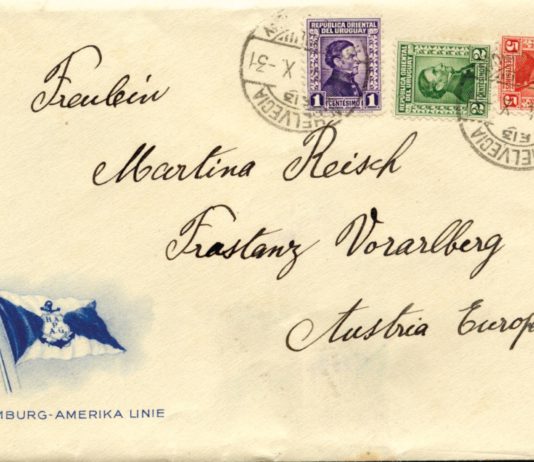 REPUBLICA ORIENTAL
DEL URUGUAY
1 CENTESIMO 1
REPUBLICA ORIENTAL
DEL URUGUAY
2 2
5
5
X -31
HELVECIA
F13
HELVECIA
F13
Freulein
Martina Reisch
Frastanz Vorarlberg
Austria Europ
H.A.
P.
A.G.
MBURG-AMERIKA LINIE